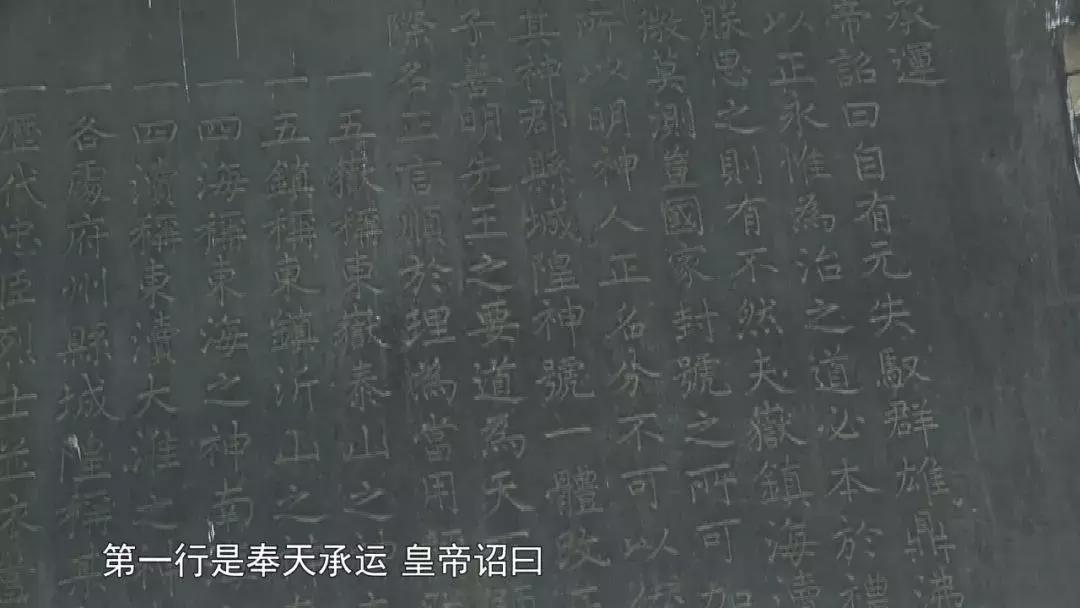 承運
帝詔曰自有元失馭群雄鼎沸
以正永惟為治之道必本於禮
朕思之則有不然夫嶽鎮海瀆
微莫測豈國家封號之所可加
所以明神人正名分不可以
其神郡縣城隍神號一體改正
子善明先王之要道為天
際名正言順於理為當用
一五嶽稱東嶽泰山之
一五鎮稱東鎮沂山之
一四海稱東海之神南
一四瀆稱東瀆大淮之
一各處府州縣城隍稱
一歷代忠臣烈士並依當
第一行是奉天承运 皇帝诏曰